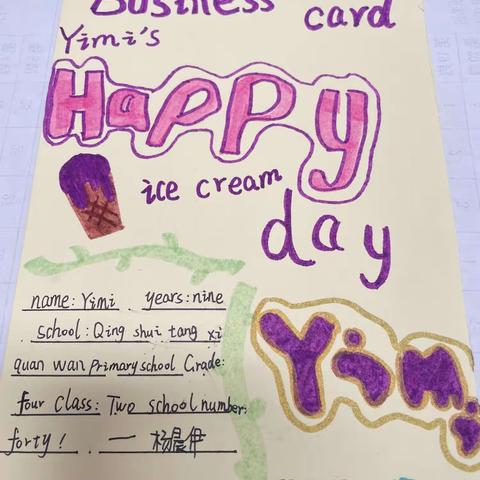 Business card
Yimi's
Happy
ice cream
day
name: Yimi years: nine
school: Qing shui tang xi
quan wan Primary school Grade:
four Class: Two school number:
forty! — 杨晨伊
Yimi